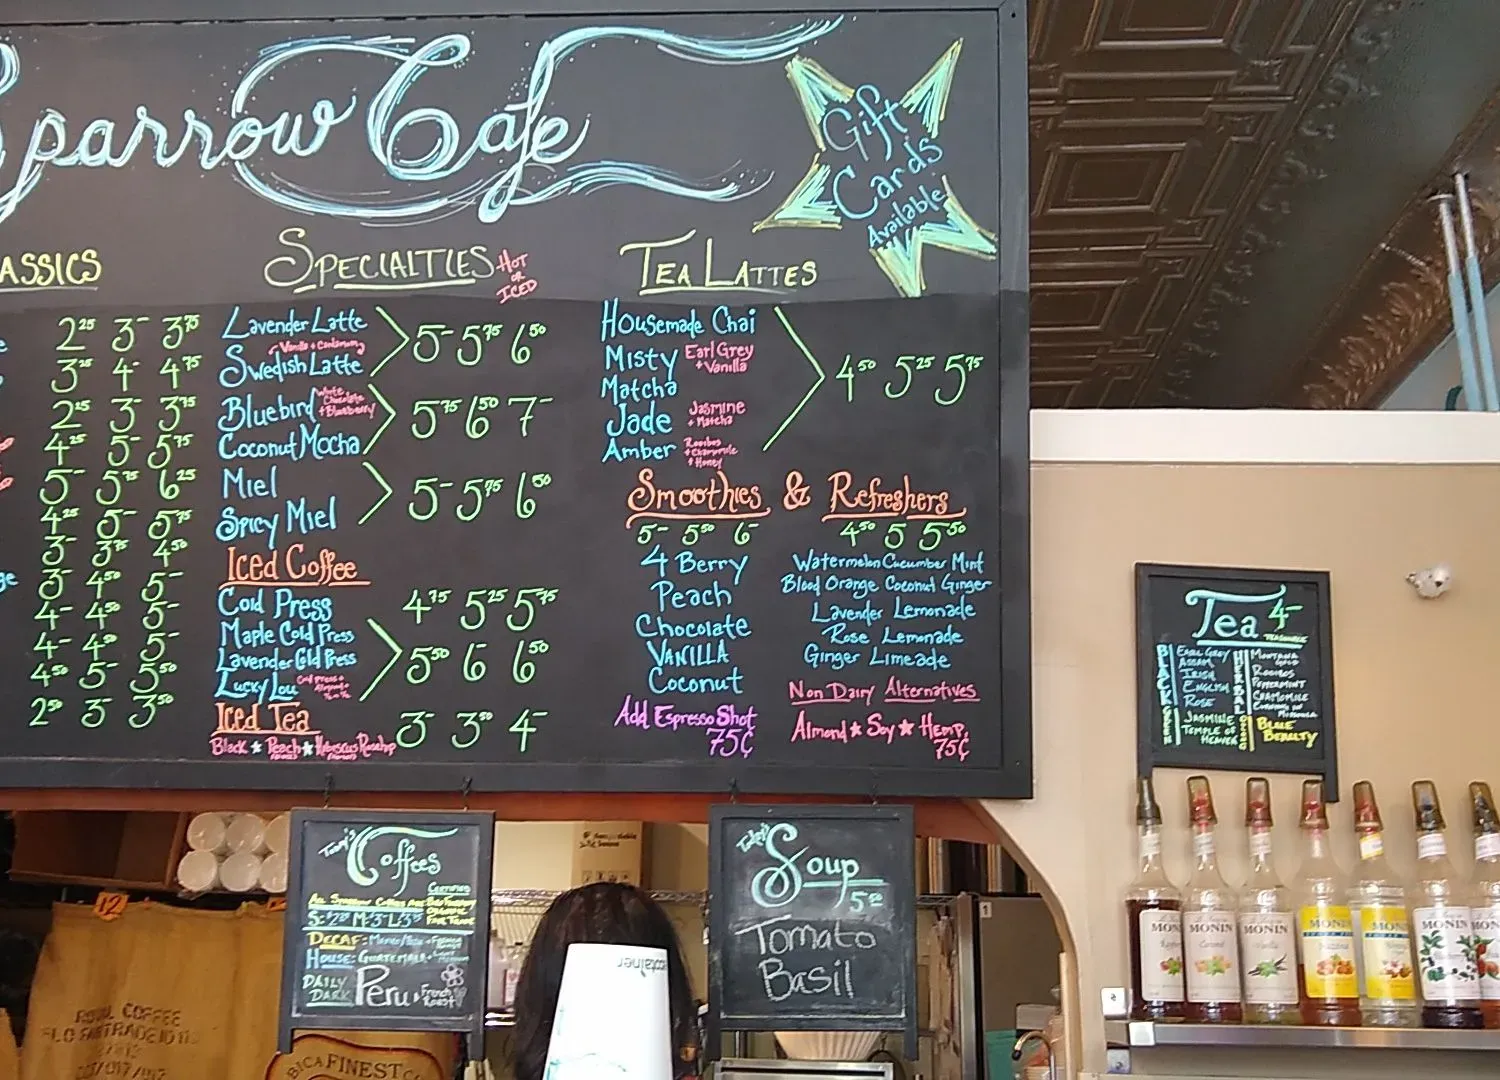 Sparrow Cafe
Gift
Cards
Available
ASSICS
2²⁵ 3⁻ 3⁷⁵
3²⁵ 4⁻ 4⁷⁵
2²⁵ 3⁻ 3⁷⁵
4²⁵ 5⁻ 5⁷⁵
5⁻ 5⁷⁵ 6²⁵
4²⁵ 5⁻ 5⁷⁵
3⁻ 3⁷⁵ 4⁵⁰
3⁻ 4⁵⁰ 5⁻
4⁻ 4⁵⁰ 5⁻
4⁻ 4⁵⁰ 5⁻
4⁵⁰ 5⁻ 5⁵⁰
2⁵⁰ 3⁻ 3⁵⁰
SPECIALTIES HOT or ICED
Lavender Latte
Vanilla + Cardamom
Swedish Latte
5⁻ 5⁷⁵ 6⁵⁰
Bluebird White Chocolate + Blueberry
Coconut Mocha
5⁷⁵ 6⁵⁰ 7⁻
Miel
Spicy Miel
5⁻ 5⁷⁵ 6⁵⁰
Iced Coffee
Cold Press 4⁷⁵ 5²⁵ 5⁷⁵
Maple Cold Press
Lavender Cold Press
Lucky Lou Cold Press +
5⁵⁰ 6 6⁵⁰
Iced Tea 3⁻ 3⁵⁰ 4⁻
Black ★ Peach ★ Hibiscus Rosehip
TEA LATTES
Housemade Chai
Misty Earl Grey + Vanilla
Matcha
Jade Jasmine + Matcha
Amber Rooibos + Chamomile + Honey
4⁵⁰ 5²⁵ 5⁷⁵
Smoothies & Refreshers
5⁻ 5⁵⁰ 6⁻
4 Berry
Peach
Chocolate
VANILLA
Coconut
Add Espresso Shot
75¢
4⁵⁰ 5 5⁵⁰
Watermelon Cucumber Mint
Blood Orange Coconut Ginger
Lavender Lemonade
Rose Lemonade
Ginger Limeade
Non Dairy Alternatives
Almond ★ Soy ★ Hemp
75¢
Tea 4⁻
BLACK
EARL GREY
ASSAM
IRISH
ENGLISH
ROSE
GREEN
JASMINE
TEMPLE OF
HEAVEN
HERBAL
MONTANA
GOLD
ROOIBOS
PEPPERMINT
CHAMOMILE
BLUE
BEAUTY
Today's
Coffees
ALL SPARROW COFFEES ARE CERTIFIED
ORGANIC
FAIR TRADE
M-3⁻
DECAF:
HOUSE: GUATEMALA
DAILY
DARK
Peru
French
Roast
Today's
Soup
5⁵⁰
Tomato
Basil
12
ROYAL COFFEE
FLO FAIRTRADE ID
FINEST
container
1
MONIN
MONIN
Caramel
MONIN
Vanilla
MONIN
MONIN
MONIN
MONIN